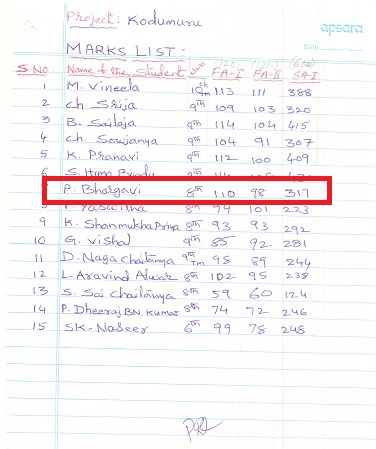 Project: Kodumuru
apsara
Date:
MARKS LIST:
(120) (120) (600)
S.NO. Name of the Student FA-I FA-II SA-I
1 M. Vineela 10th TM 113 111 388
2 Ch. Srija 9th 109 103 320
3 B. Sailaja 9th 114 104 415
4 Ch. Sowjanya 9th 104 91 307
5 K. Pranavi 9th 112 100 409
6 S. Hima Bindu
P. Bhargavi 8th 110 98 317
Yaswitha 94 101 223
9 K. Shanmukha Priya 8th 93 93 292
10 G. Vishal 9th 85 92 281
11 D. Naga Chaitanya 9th TM 98 89 244
12 L. Aravind Alwar 8th 102 95 238
13 S. Sai Chaitanya 8th 59 60 124
14 P. Dheeraj BN Kumar 8th 74 72 246
15 SK. Naseer 6th 99 78 248